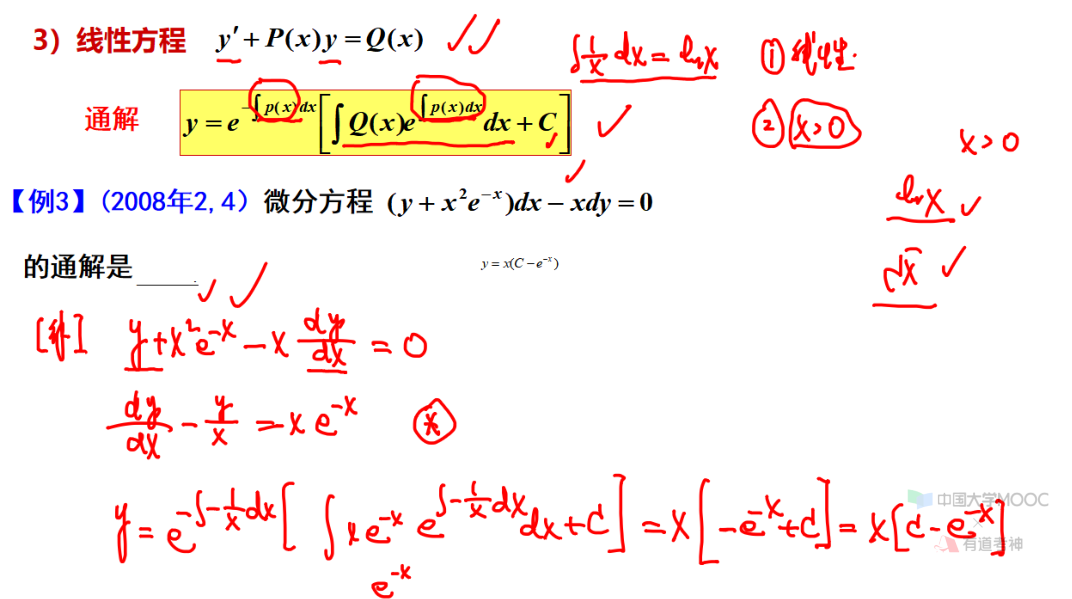 3）线性方程 y′ + P(x)y = Q(x)
∫ 1/x dx = ln x ① 线性.
通解 y = e^{-∫p(x)dx} [∫ Q(x)e^{∫p(x)dx} dx + C]
② x>0
x>0
【例3】(2008年2,4) 微分方程 (y + x²e^{-x})dx − xdy = 0
ln x
的通解是_____.
y = x(C − e^{-x})
√x
[解] y + x²e^{-x} − x dy/dx = 0
dy/dx − y/x = x e^{-x} ⊛
y = e^{-∫-1/x dx} [∫ x e^{-x} e^{∫-1/x dx} dx + C] = x[−e^{-x} + C] = x[C − e^{-x}]
e^{-x}
中国大学MOOC
×
有道考神